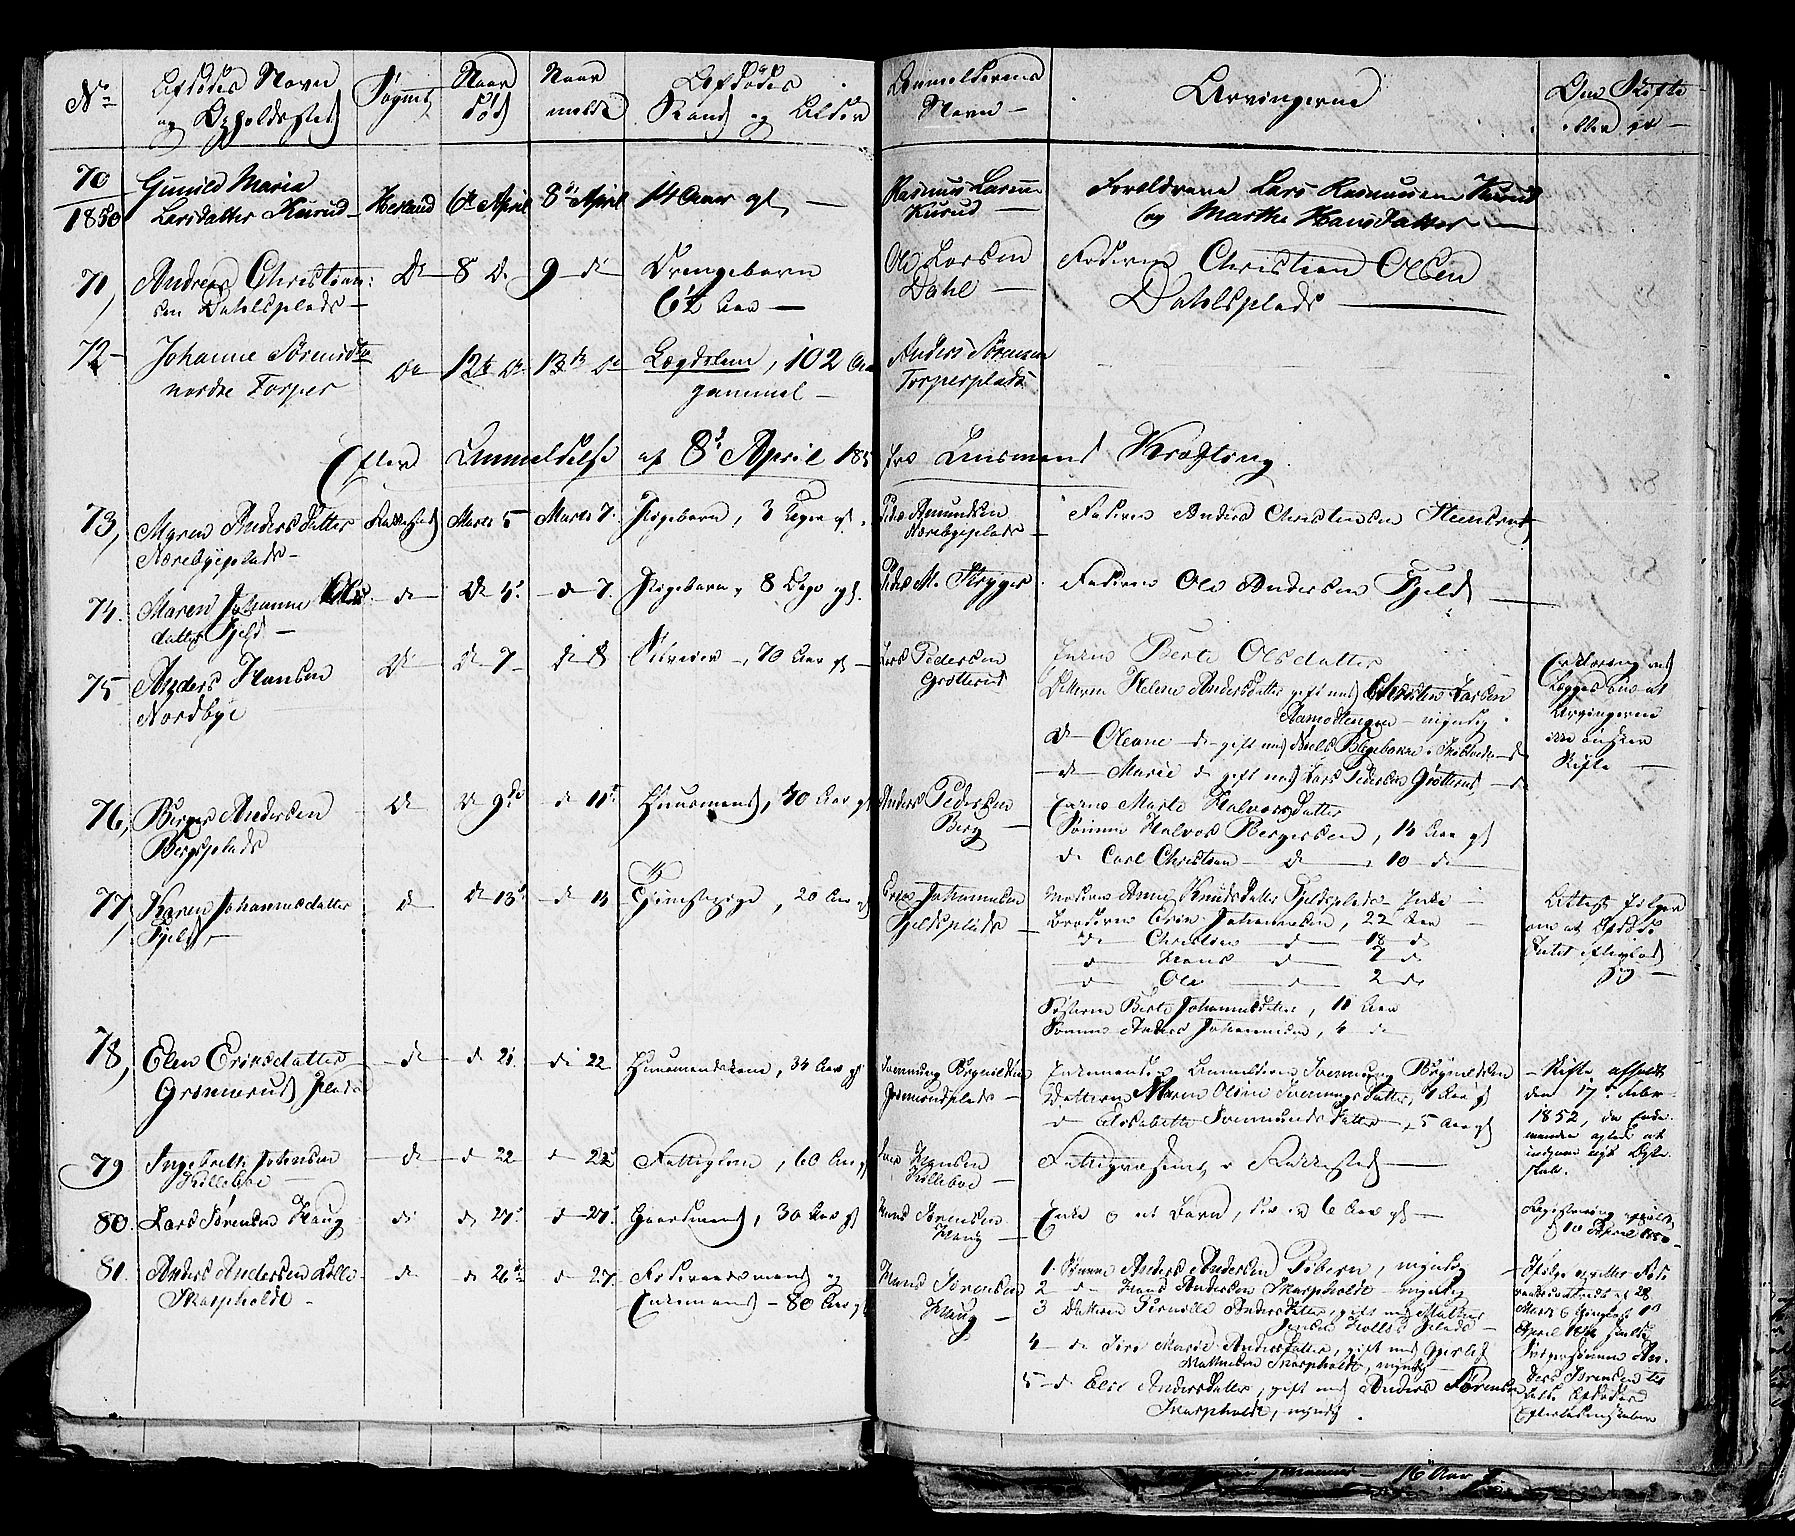 No
Afdødes Navn
og Opholdssted
Sognet
Naar
død
Naar
meldt
Afdødes
Stand og Alder
Anmelderens
Navn
Arvingerne
Om Skifte
eller ei
70
1850
Gunild Maria
Larsdatter Kurud
Herland
6te April
8de April
14 Aar gl
Rasmus Larsen
Kurud
Forældrene Lars Rasmussen Kurud
og Marthe Hansdatter
71,
Andreas Christian-
sen Dahlsplads
Do
8 Do
9 do
Drengebarn
6½ Aar
Ole Larsen
Dahl
Faderen Christian Olsen
Dahlsplads
72
Johanne Sørensdtr
nordre Torper
Do
12te Do
13de Do
Lægdslem, 102 Aar
gammel
Anders Sørensen
Torpersplads
Efter Anmeldelse af 8de April 185
fra Lensmand Kræfting
73,
Maren Andersdatter
Nærebyeplads
Rakkestad
Marts 5
Marts 7.
Pigebarn, 3 Uger gl.
Peder Amundsen
Nærebyeplads
Faderen Anders Christensen Steensrud
74.
Maren Johanne Ols
datter Fjeld
do
Do 4.
do 7.
Pigebarn, 8 Dage gl.
Peder M. Krygger
Faderen Ole Andersen Fjeld
75
Anders Hansen
Nordbye
Do
Do 7
Do 8
Selveier, 70 Aar gl
Lars Pedersen
Grøtterud
Enken Berte Olsdatter
Datteren Helene Andersdatter gift med Christen Larsen
Aamodtengen myndig.
Do Oleane do gift med Niels i
do Marie do gift med Lars Pedersen Grøtterud do
Erklæring ved-
lægges om at
Arvingerne
ikke ønsker
Skifte
76,
Berger Andersen
Bergsplads
Do
Do 9de
do 11te
Huusmand, 40 Aar gl
Anders Pedersen
Berg
Enken Marte Halvorsdatter
Sønnen Halvor Bergersen, 14 Aar gl
do Carl Christian do 10 do
77,
Karen Johannesdatter
Fjeld,
do
Do 13de
do 14
Tjenestepige, 20 Aar gl
Erik Johannesen
Fjeldsplads
Moderen Anne Knudsdatter Fjeldsplads Enke
Broderen Erik Johannesen, 22 Aar
do Christian do 18 do
do Hans do 7 do
do Ole do 2 do
Søsteren Berte Johannesdatter, 11 Aar
Sønnen Anders Johannesen, 4 do
Attest følger
om at Afdøde
Intet efterlod
sig
78,
Elen Eriksdatter
Grønnerud Plads
do
do 21
do 22
Huusmandskone, 34 Aar gl
Svennung Brynildsen
Grønnerudplads
Enkemanden Anmelderen Svennung Brynildsen
Datteren Maren Oline Svennungsdatter, 8 Aar gl
do Elisabeth Svennungsdatter, 5 Aar gl
Skifte afholdt
den 17de Febr
1852, da Enke-
manden agted at
indgaae nyt Ægte-
skab.
79
Ingebreth Johnsen
Killeboe
do
do 22
do 22
Fattiglem, 60 Aar gl
Hansen
Killeboe
Fattigvæsenet i Rakkestad
80.
Lars Sørensen Haug
do
do 27.
do 27.
Gaardmand, 30 Aar gl
Hans Sørensen
Haug
Enke og et Barn, der er 6 Aar gl
Registrering afholdt
d 10 April 1850
81.
Anders Andersen Lille
Skarpholdt
do
do 26de
do 27.
Føderaadsmand og
Enkemand 80 Aar gl
Hans Sørensen
Haug
1. Sønnen Anders Andersen, myndig
2 do Hans Andersen Skarpholdt myndig
3 Datteren Pernille Andersdatter, gift med Mathias
Jensen Plads
4 do Siri Marie Andersdatter, gift med
Mathiesen Skarpholdt, myndig
5 do Else Andersdatter, gift med Anders Sørensen
Skarpholdt, myndig.
Ifølge oprettet Føde-
raadscontract af 28
Marts
April
Anders Sørensen
Efterladenskaber
Johannes 16 Aar